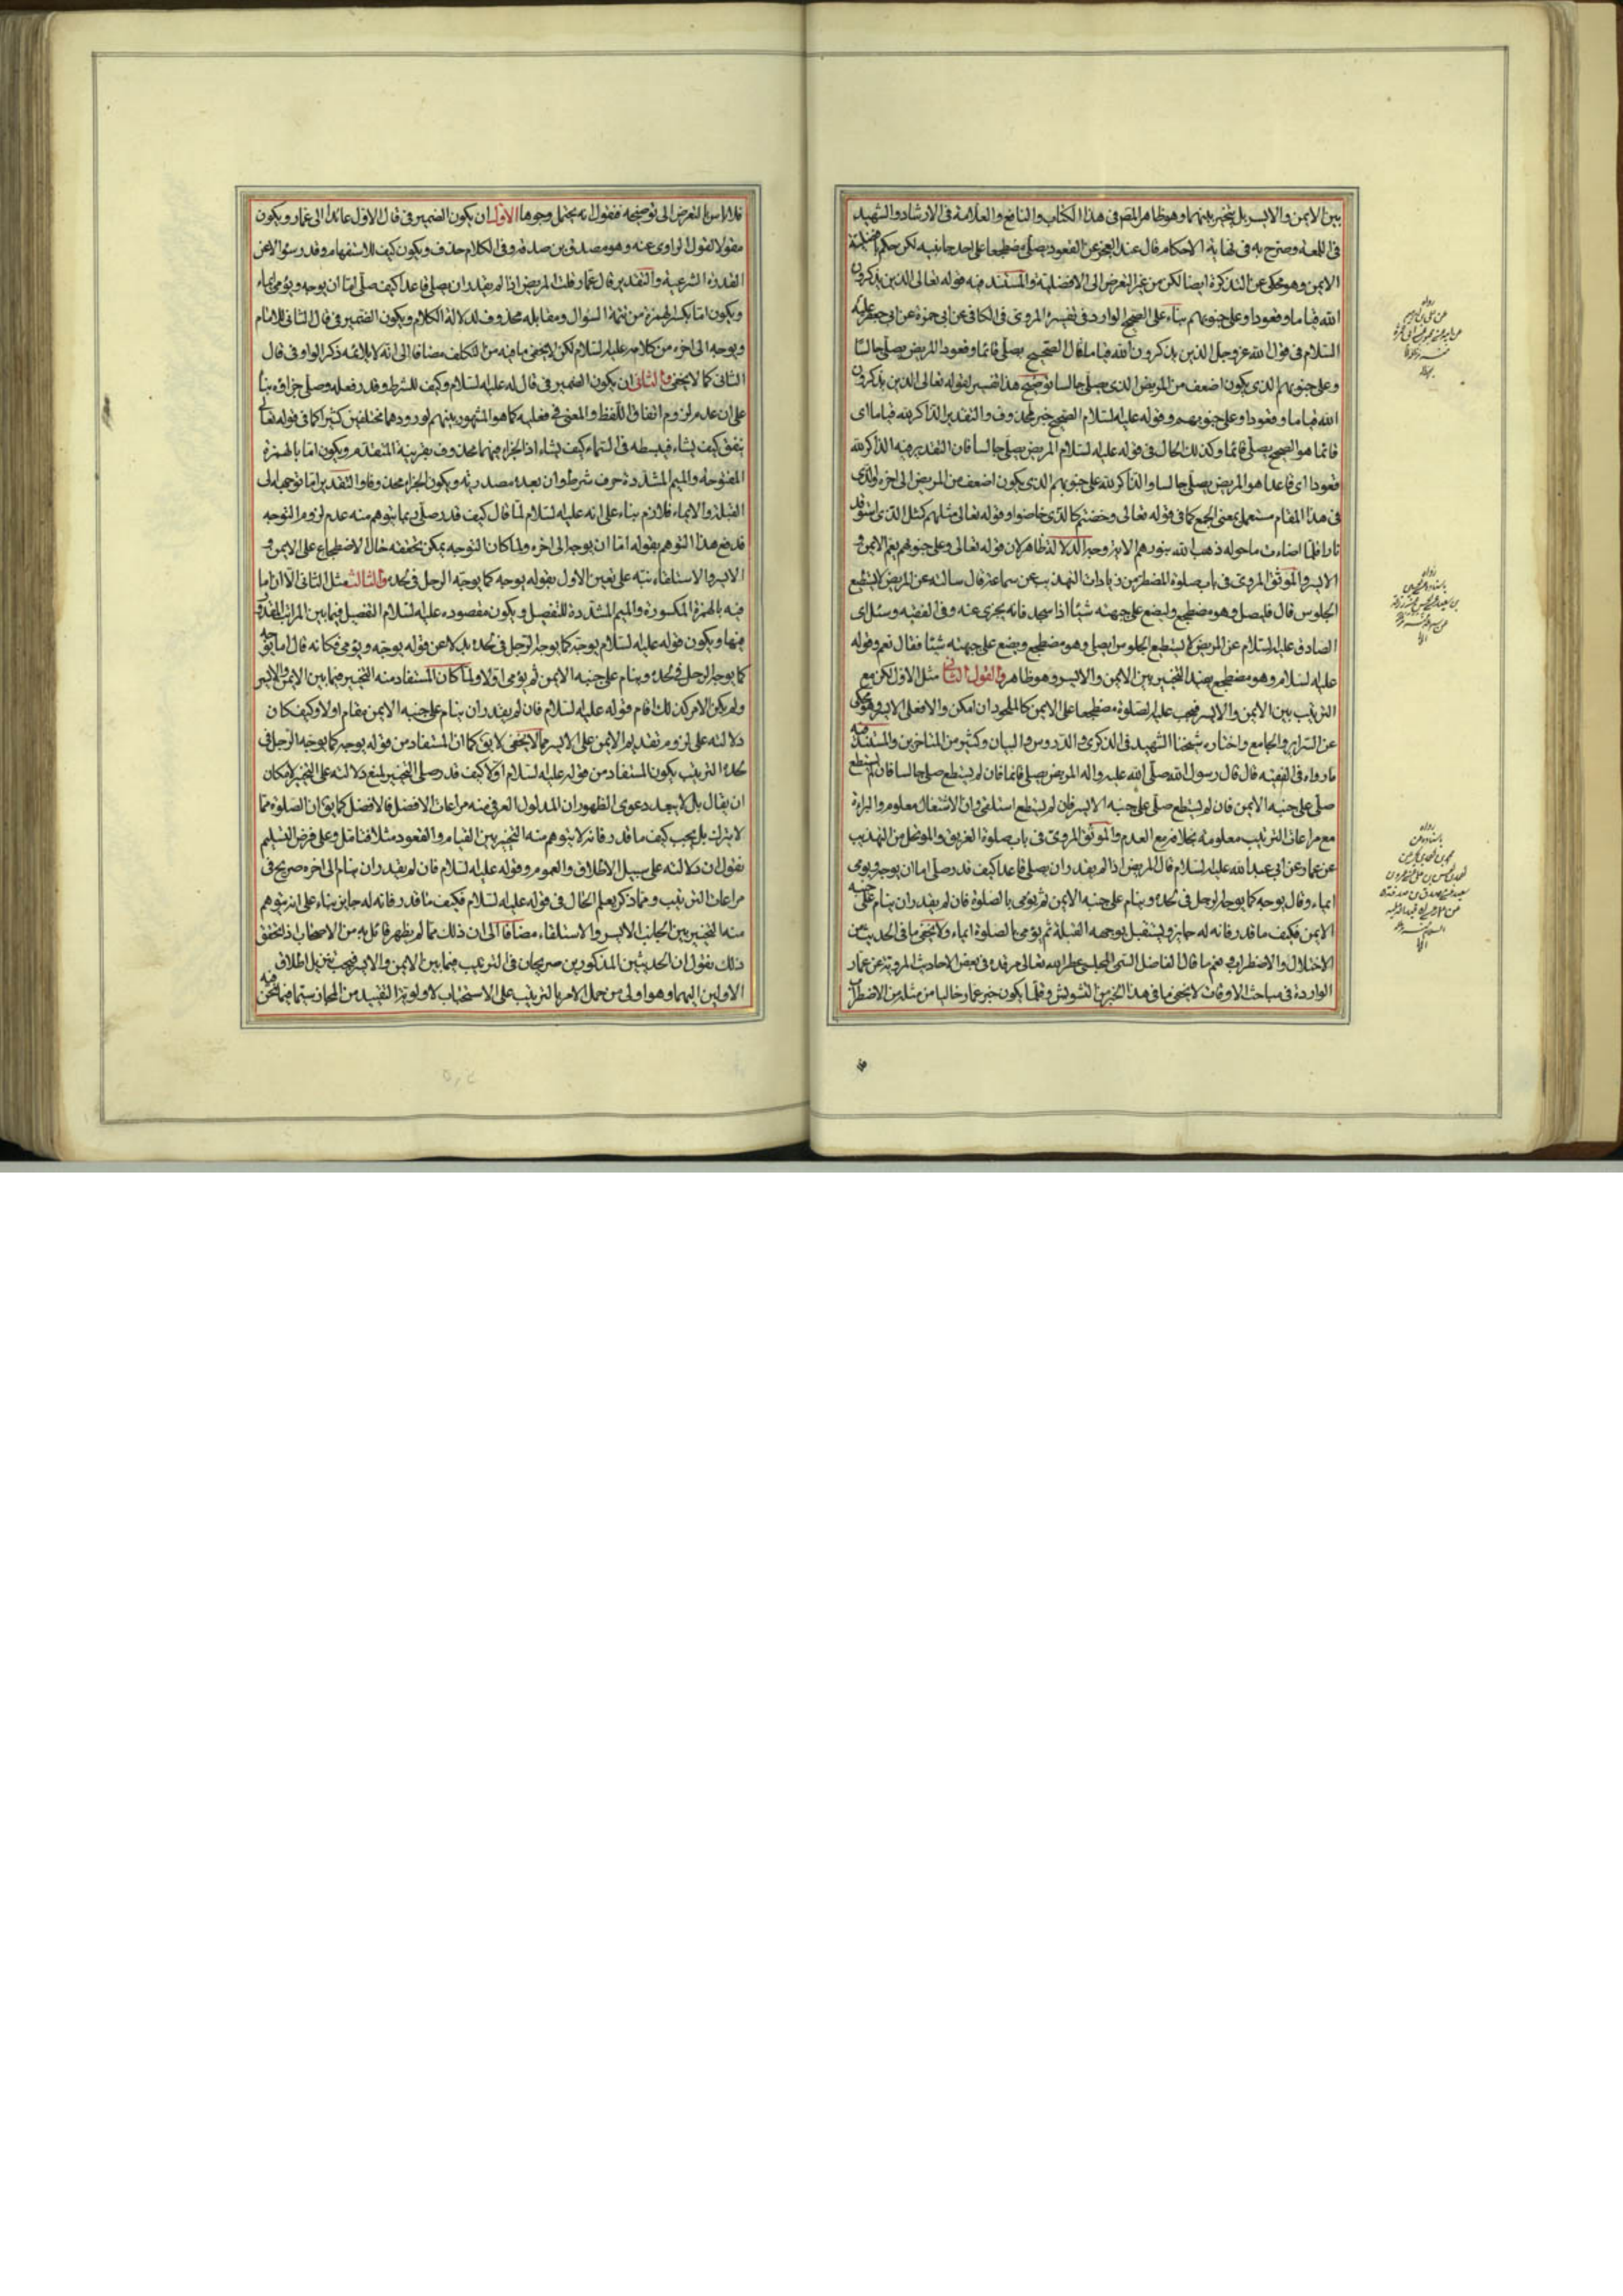 بين الايمن والايسر بل يتخير بينهما وهو ظاهر المص في هذا الكتاب والنافع والعلامة في الارشاد والشهيد
في اللمعة وصرح به في نهاية الاحكام قال عند العجز عن القعود يصلي مضطجعا على احد جانبيه لكن حكم بافضلية
الايمن وهو محكي عن التذكرة ايضا لكن من غير التعرض الى الافضلية والمستند فيه قوله تعالى الذين يذكرون
الله قياما وقعودا وعلى جنوبهم بناء على الصحيح الوارد في تفسيره المروي في الكافي عن ابي حمزة عن ابي جعفر عليه
السلام في قول الله عز وجل الذين يذكرون الله قياما قال الصحيح يصلي قائما وقعودا المريض يصلي جالسا
وعلى جنوبهم الذي يكون اضعف من المريض الذي يصلي جالسا توضيح هذا تفسير لقوله تعالى الذين يذكرون
الله قياما وقعودا وعلى جنوبهم وقوله عليه السلام الصحيح خبر لمحذوف والتقدير الذاكر لله قياما اي
قائما هو الصحيح يصلي قائما وكذلك الحال في قوله عليه السلام المريض يصلي جالسا فان التقدير فيه الذاكر لله
قعودا اي قاعدا هو المريض يصلي جالسا والذاكر لله على جنوبهم الذي يكون اضعف من المريض الى اخره والذي
في هذا المقام مستعمل بمعنى الجمع كما في قوله تعالى وخضتم كالذي خاضوا وقوله تعالى مثلهم كمثل الذي استوقد
نارا فلما اضاءت ما حوله ذهب الله بنورهم الاية وجه الدلالة ظاهر لان قوله تعالى وعلى جنوبهم يعم الايمن و
الايسر والموثق المروي في باب صلوة المضطر من زيادات التهذيب عن سماعة قال سالته عن المريض لا يستطيع
الجلوس قال فليصل وهو مضطجع وليضع على جبهته شيئا اذا سجد فانه يجزي عنه وفي الفقيه وسئل اي
الصادق عليه السلام عن المريض لا يستطيع الجلوس ايصلي وهو مضطجع ويضع على جبهته شيئا فقال نعم وقوله
عليه السلام وهو مضطجع يفيد التخيير بين الايمن والايسر وهو ظاهر والقول الثاني مثل الاول لكن مع
الترتيب بين الايمن والايسر فيجب عليه الصلوة مضطجعا على الايمن كالملحود ان امكن والا فعلى الايسر وهو محكي
عن السرائر والجامع واختاره شيخنا الشهيد في الذكرى والدروس والبيان وكثير من المتاخرين والمستند فيه
ما رواه في الفقيه قال قال رسول الله صلى الله عليه واله المريض يصلي قائما فان لم يستطع صلى جالسا فان لم يستطع
صلى على جنبه الايمن فان لم يستطع صلى على جنبه الايسر فان لم يستطع استلقى وان الاشتغال معلوم والبراءة
مع مراعاة الترتيب معلومة بخلافه مع العدم والموثق المروي في باب صلوة الغريق والموتحل من التهذيب
عن عمار عن ابي عبد الله عليه السلام قال المريض اذا لم يقدر ان يصلي قاعدا كيف قدر صلى اما ان يوجه ويومي
ايماء وقال يوجه كما يوجه الرجل في لحده وينام على جنبه الايمن ثم يومي بالصلوة فان لم يقدر ان ينام على جنبه
الايمن فكيف ما قدر فانه له جايز ويستقبل بوجهه القبلة ثم يومي بالصلوة ايماء ولا يخفى ما في الحديث من
الاختلال والاضطراب نعم ما قال الفاضل التقي المجلسي عطر الله تعالى مرقده في بعض الاحاديث المروية عن عمار
الواردة في مباحث الاوقات لا يخفى ما في هذا الخبر من التشويش وقلما يكون خبر عمار خاليا من مثله من الاضطراب
فلا باس بالتعرض الى توضيحه فنقول انه يحتمل وجوها الاول ان يكون الضمير في قال الاول عائدا الى عمار ويكون
مقولا لقول الراوي عنه وهو مصدق بن صدقة وفي الكلام حذف ويكون كيف للاستفهام وقدر سؤالا عن
القدرة الشرعية والتقدير قال عمار قلت المريض اذا لم يقدر ان يصلي قاعدا كيف صلى اما ان يوجه ويومي ايماء
ويكون اما بكسر الهمزة من تتمة السؤال ومقابله محذوف لدلالة الكلام ويكون الضمير في قال الثاني للامام
ويوجه الى اخره من كلامه عليه السلام لكن لا يخفى ما فيه من التكلف مضافا الى انه لا يلائمه ذكر الواو في قال
الثاني كما لا يخفى والثاني ان يكون الضمير في قال له عليه السلام وكيف للشرط وقدر فعله وصلى جزاؤه بناء
على ان عدم لزوم اتفاق اللفظ والمعنى في فعليه كما هو المشهور بينهم لورودهما مختلفين كثيرا كما في قوله تعالى
ينفق كيف يشاء فيبسطه في السماء كيف يشاء اذ الجزاء فيهما محذوف بقرينة المتقدم ويكون اما بالهمزة
المفتوحة والميم المشددة حرف شرط وان بعده مصدرية ويكون الجزاء محذوفا والتقدير اما توجهه الى
القبلة والايماء فلازم بناء على انه عليه السلام لما قال كيف قدر صلى ربما يتوهم منه عدم لزوم التوجه
فدفع هذا التوهم بقوله اما ان يوجه الى اخره ولما كان التوجه يمكن تحققه حال الاضطجاع على الايمن و
الايسر والاستلقاء نبه على تعيين الاول بقوله يوجه كما يوجه الرجل في لحده والثالث مثل الثاني الا ان اما
فيه بالهمزة المكسورة والميم المشددة للتفصيل ويكون مقصوده عليه السلام التفصيل فيما بين المراتب المقدور
منها ويكون قوله عليه السلام يوجه كما يوجه الرجل في لحده بدلا عن قوله يوجه ويومي فكانه قال اما يوجه
كما يوجه الرجل في لحده وينام على جنبه الايمن ثم يومي اولا ولما كان المستفاد منه التخيير فيما بين الايمن والايسر
ولم يكن الامر كذلك اقام قوله عليه السلام فان لم يقدر ان ينام على جنبه الايمن مقام او لا وكيف كان
دلالته على لزوم تقديم الايمن على الايسر مما لا يخفى لا يق كما ان المستفاد من قوله يوجه كما يوجه الرجل في
لحده الترتيب يكون المستفاد من قوله عليه السلام اولا كيف قدر صلى التخيير لمنع دلالته على التخيير لامكان
ان يقال بل لا يبعد دعوى الظهور ان المدلول العرفي منه مراعاة الافضل فالافضل كما يق ان الصلوة مما
لا يترك بل يجب كيف ما قدر فانه لا يتوهم منه التخيير بين القيام والقعود مثلا فتامل وعلى فرض التسليم
نقول ان دلالته على سبيل الاطلاق والعموم وقوله عليه السلام فان لم يقدر ان ينام الى اخره صريح في
مراعاة الترتيب ومما ذكر يعلم الحال في قوله عليه السلام فكيف ما قدر فانه له جايز بناء على انه يتوهم
منه التخيير بين الجانب الايسر والاستلقاء مضافا الى ان ذلك مما لم يظهر قائل به من الاصحاب اذا تحقق
ذلك نقول ان الحديثين المذكورين صريحان في الترتيب فيما بين الايمن والايسر فيجب تنزيل اطلاق
الاولين اليهما وهو اولى من حمل الامر بالترتيب على الاستحباب لاولوية التقييد من المجاز سيما فيما نحن فيه